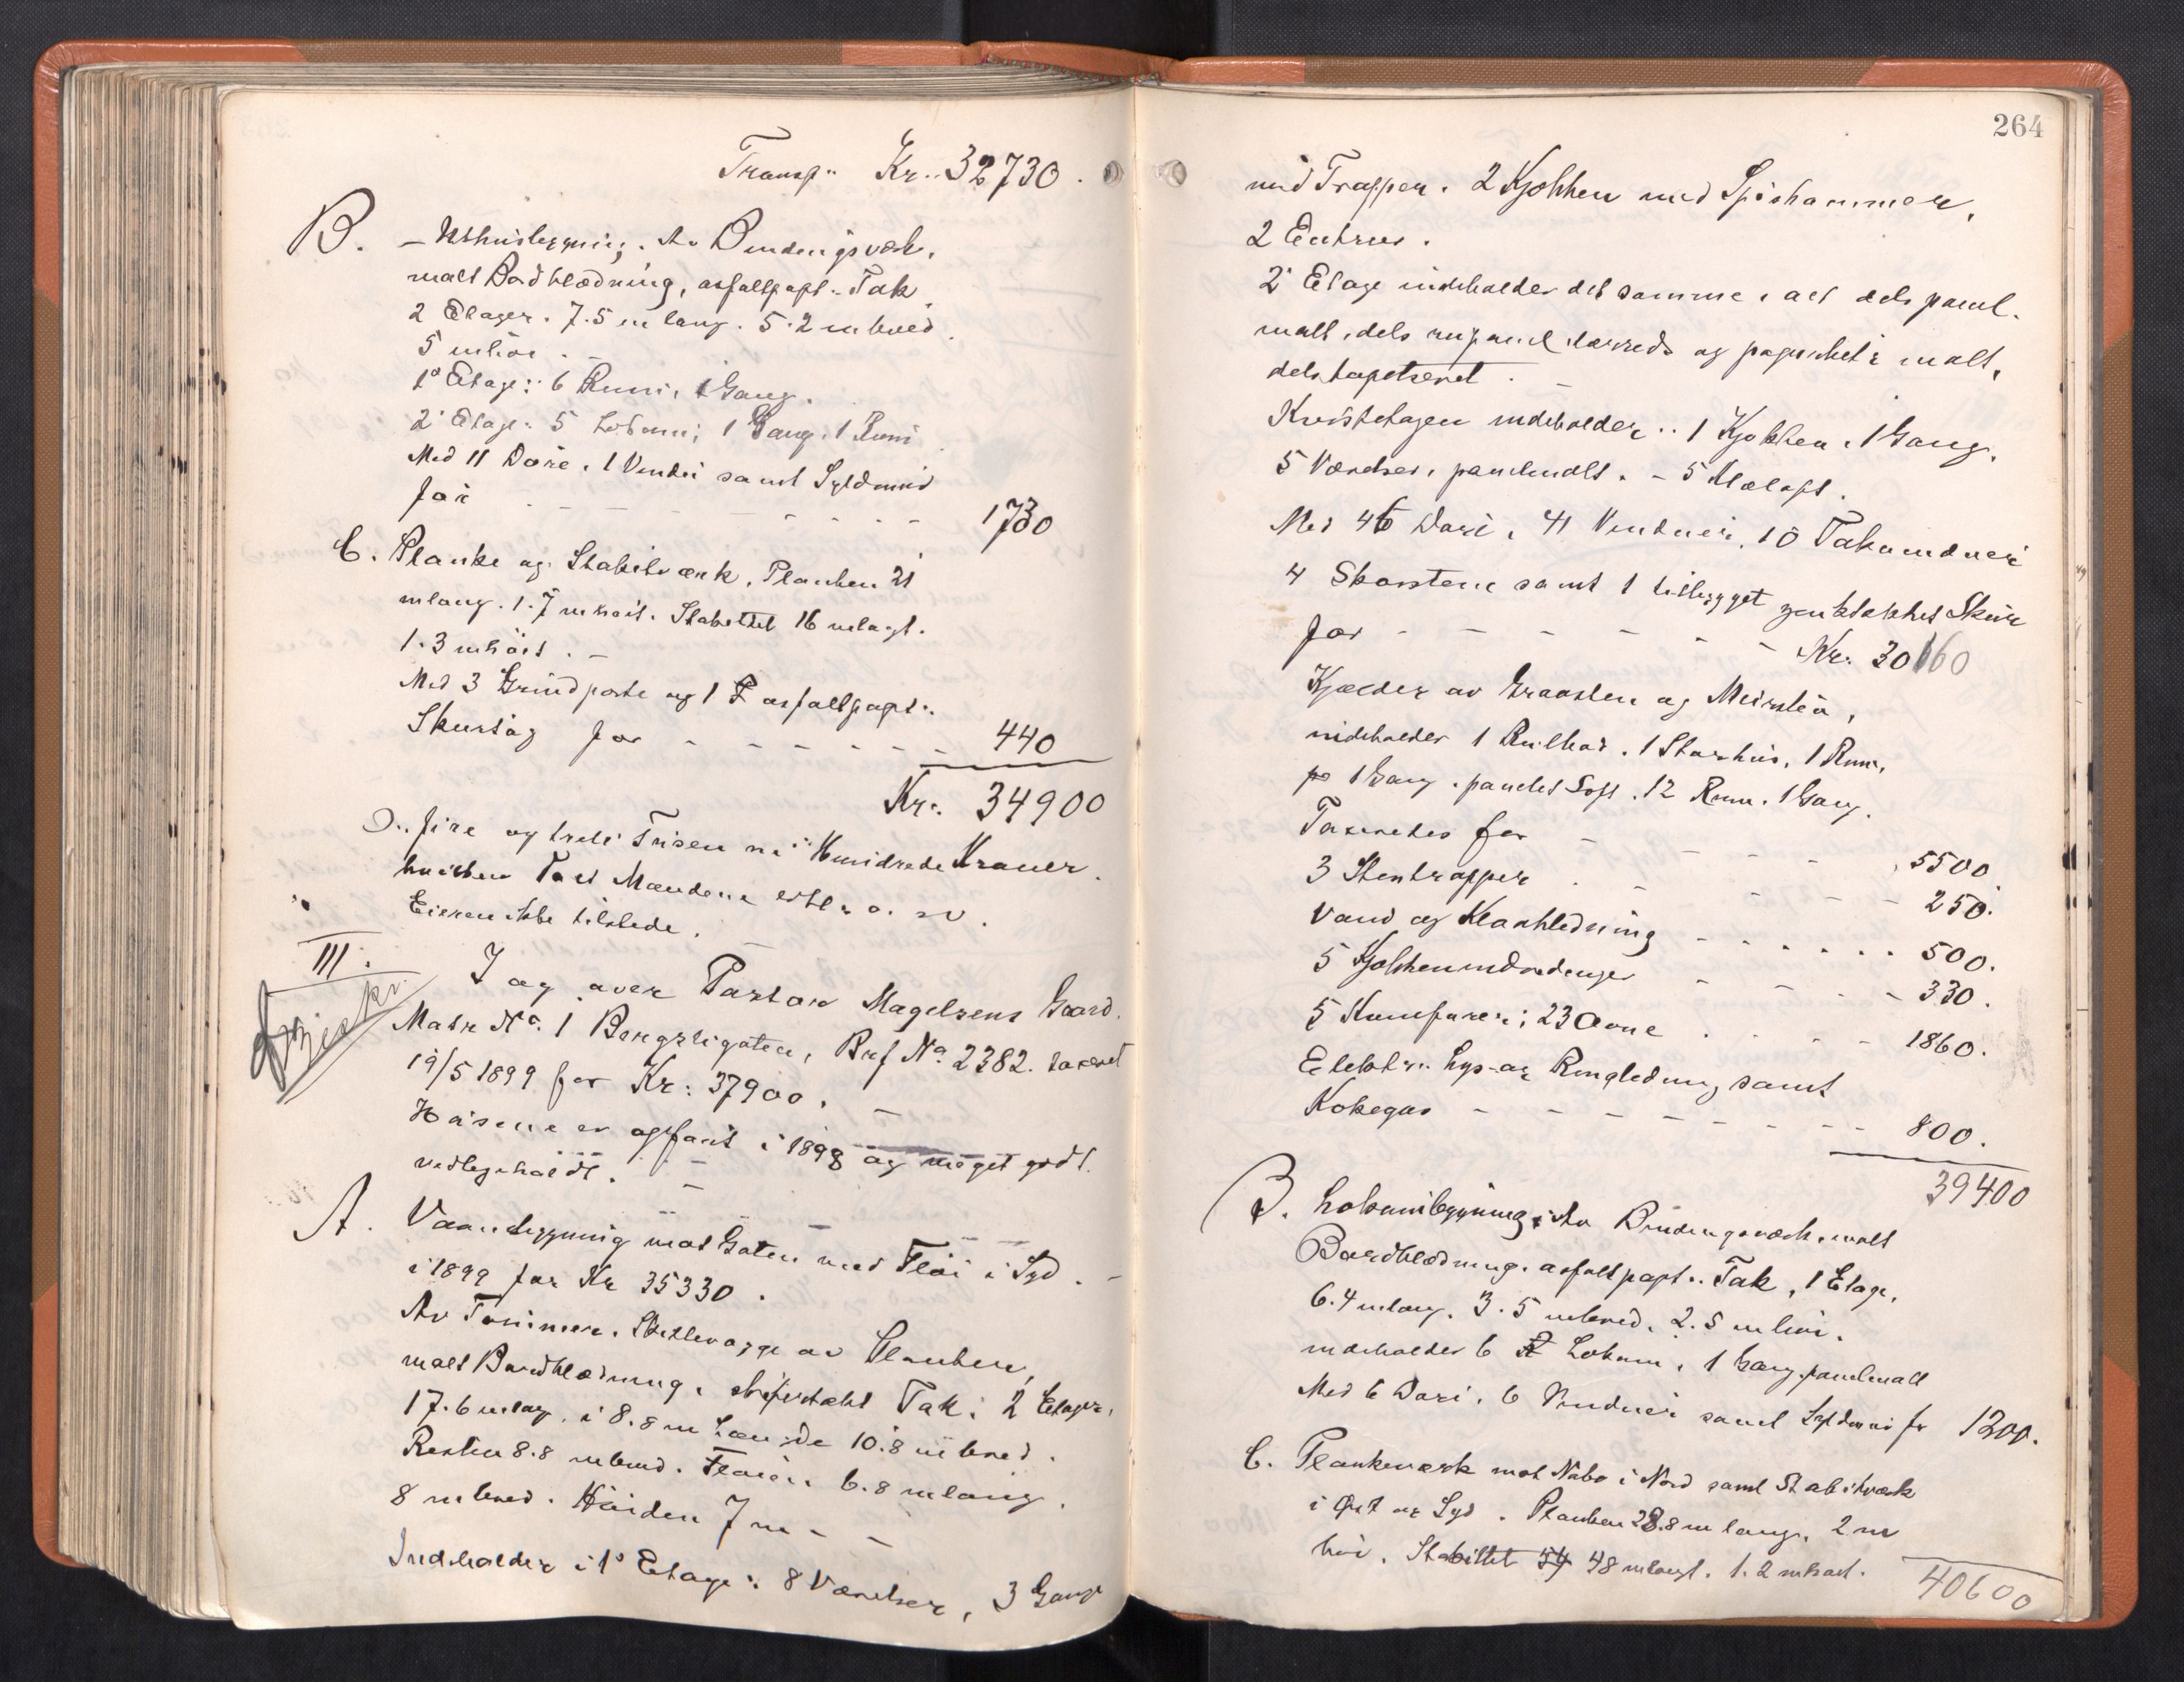 Transp: Kr. 32730.
B. - Uthusbygning. Av Bindingsværk,
malt Bordklædning, asfaltpapt. Tak
2 Etager. 7.5 m lang. 5.2 m bred.
5 m høi. -
1' Etage: 6 Rum, 1 Gang.
2' Etage: 5 Lokum; 1 Gang. 1 Rum
Med 11 Døre, 1 Vindu samt Syldmur
for - - - - - - - 1730
C. Planke og Stakitværk. Planken 21
m lang. 1.7 m høit. Stakittet 16 m lagt.
1.3 m høit. -
Med 3 Grindporte og 1 asfaltpapt.
Skurtag for - - - - - - 440
Kr. 34900
fire og treti Tusen ni Hundrede Kroner.
Mændene
Eieren ikke tilstede. -
III. I og over Pastor Magelsens Gaard.
Matr No. 1 Bergsligaten, Brf No. 2382. taxeret
19/5 1899 for Kr: 37900. -
Husene er opført i 1898 og meget godt
vedlegeholdt. -
A. Vaanebygning mot Gaten med Fløi i Syd. -
i 1899 for Kr 35330.
Av Tømmer. Skillevægge av Planker,
malt Bordklædning, skifertækt Tak. 2 Etager,
17.6 m lang, i 8.8 m Længde 10.8 m bred.
Resten 8.8 m bred. Fløien 6.8 m lang.
8 m bred. Høiden 7 m - -
Indeholder i 1' Etage: 8 Værelser, 3 Gange
264
med Trapper. 2 Kjøkken med Spiskammer,
2 Entreer.
2' Etage indeholder det samme, alt dels panel-
malt, dels rupanel lærreds og papirklæt malt,
dels tapetseret. -
Kvistetagen indeholder: 1 Kjøkken, 1 Gang,
5 Værelser, panelmalt. - 5 Mælaft.
Med 46 Døre, 41 Vinduer, 10 Takvinduer
4 Skorstene samt 1 tilbygget zinktækket Skur
for - - - - - - Kr. 30160
Kjælder av Graasten og Mursten,
indeholder 1 Rulbod. 1 Storhus, 1 Rum,
1 Gang. panelet Loft. 12 Rum. 1 Gang.
Taxeredes for - - - - 5500
3 Stentrapper - - - - 250.
Vand og Kloakledning - - - - - 500.
5 Kjøkkenindredninger - - - - 330.
5 Komfurer; 23 Ovne - - - - 1860.
Elektr. Lys- og Ringledning samt
Kokegas - - - - - - - 800.
39400
B. Lokumbygning. Av Bindingsværk, malt
Bordklædning. asfaltpapt. Tak, 1 Etage,
6.4 m lang. 3.5 m bred. 2.5 m høi.
indeholder 6 Lokum, 1 Gang, panelmalt
Med 6 Døre. 6 Vinduer samt Syldmur for 1200.
C. Plankeværk mot Nabo i Nord samt Stakitværk
i Øst og Syd. Planken 28.8 m lang. 2 m
høi. Stakittet 54 48 m langt. 1.2 m høit.
40600